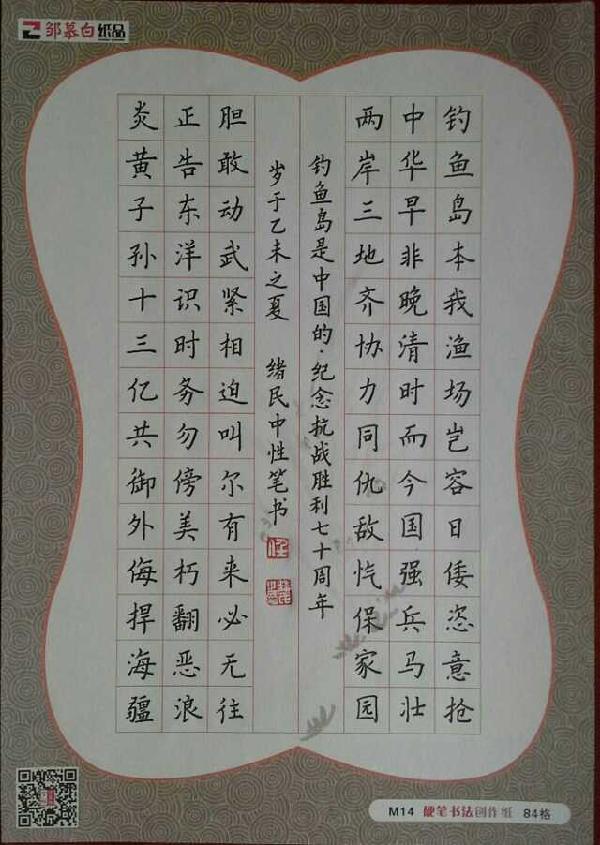 邹慕白纸品
钓鱼岛本我渔场岂容日倭恣意抢
中华早非晚清时而今国强兵马壮
两岸三地齐协力同仇敌忾保家园
钓鱼岛是中国的·纪念抗战胜利七十周年
岁于乙未之夏 绪民中性笔书
胆敢动武紧相迫叫尔有来必无往
正告东洋识时务勿傍美朽翻恶浪
炎黄子孙十三亿共御外侮捍海疆
M14 硬笔书法创作纸 84格